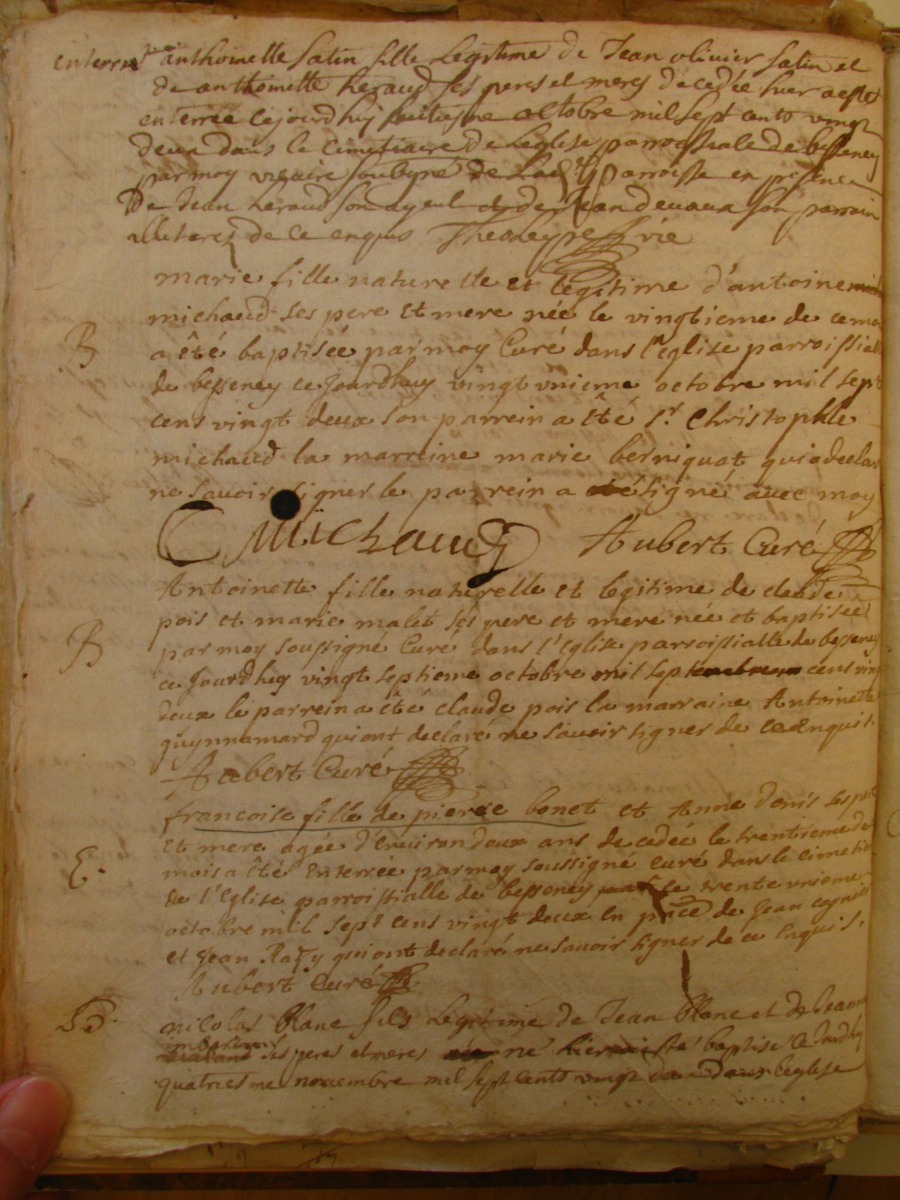 enterrmt anthoinette satin fille Legitime de Jean olivier satin et
de anthoinette heraud ses peres et meres decedée hier a esté
enterrée cejourdhuy octobre mil sept cents vingt
deux dans le cimetiaire de Leglise parrossiale de besseney
par moy vicaire soubsigné de parroisse en presence
De Jean heraud son ayeul et de Jean devaux son parrain
illiteres de ce enquis vic
marie fille naturelle et legitime d'antoine
michaud ses pere et mere née le vingtieme de ce mois
B a été baptisée par moy Curé dans l'eglise parroissialle
de besseney ce Jourdhuy vingt unieme octobre mil sept
cens vingt deux son parrein a êté sr. Christophle
michaud la marreine marie berniquat qui a declaré
ne savoir signer le parrein a signé avec moy
C Michaud Aubert Curé
Antoinette fille naturelle et legitime de claude
pois et marie malet ses pere et mere née et baptisée
B par moy soussigné Curé dans l'Eglise parroissialle de besseney
ce Jourdhuy vingt septieme octobre mil sept cens vingt
deux le parrein a été claude pois la marraine Antoinette
guynnamard qui ont declaré ne savoir signer de ce enquis.
Aubert Curé
francoise fille de pierre bonet et Anne denis ses pere
et mere agée d'Environ deux ans decedée le trentieme de
E. mois a êté Enterrée par moy soussigné curé dans le cimetiere
de l'Eglise parroissialle de besseney ce trente unieme
octobre mil sept cens vingt deux En pnce de Jean
et Jean Razy qui ont declaré ne savoir signer de ce Enquis.
Aubert Curé
B. nicolas blanc fils Legitime de Jean blanc et de Jeanne
ses peres et meres né hier a esté baptisé ce Jourdhuy
quatriesme novembre mil sept cents vingt deux dans leglise